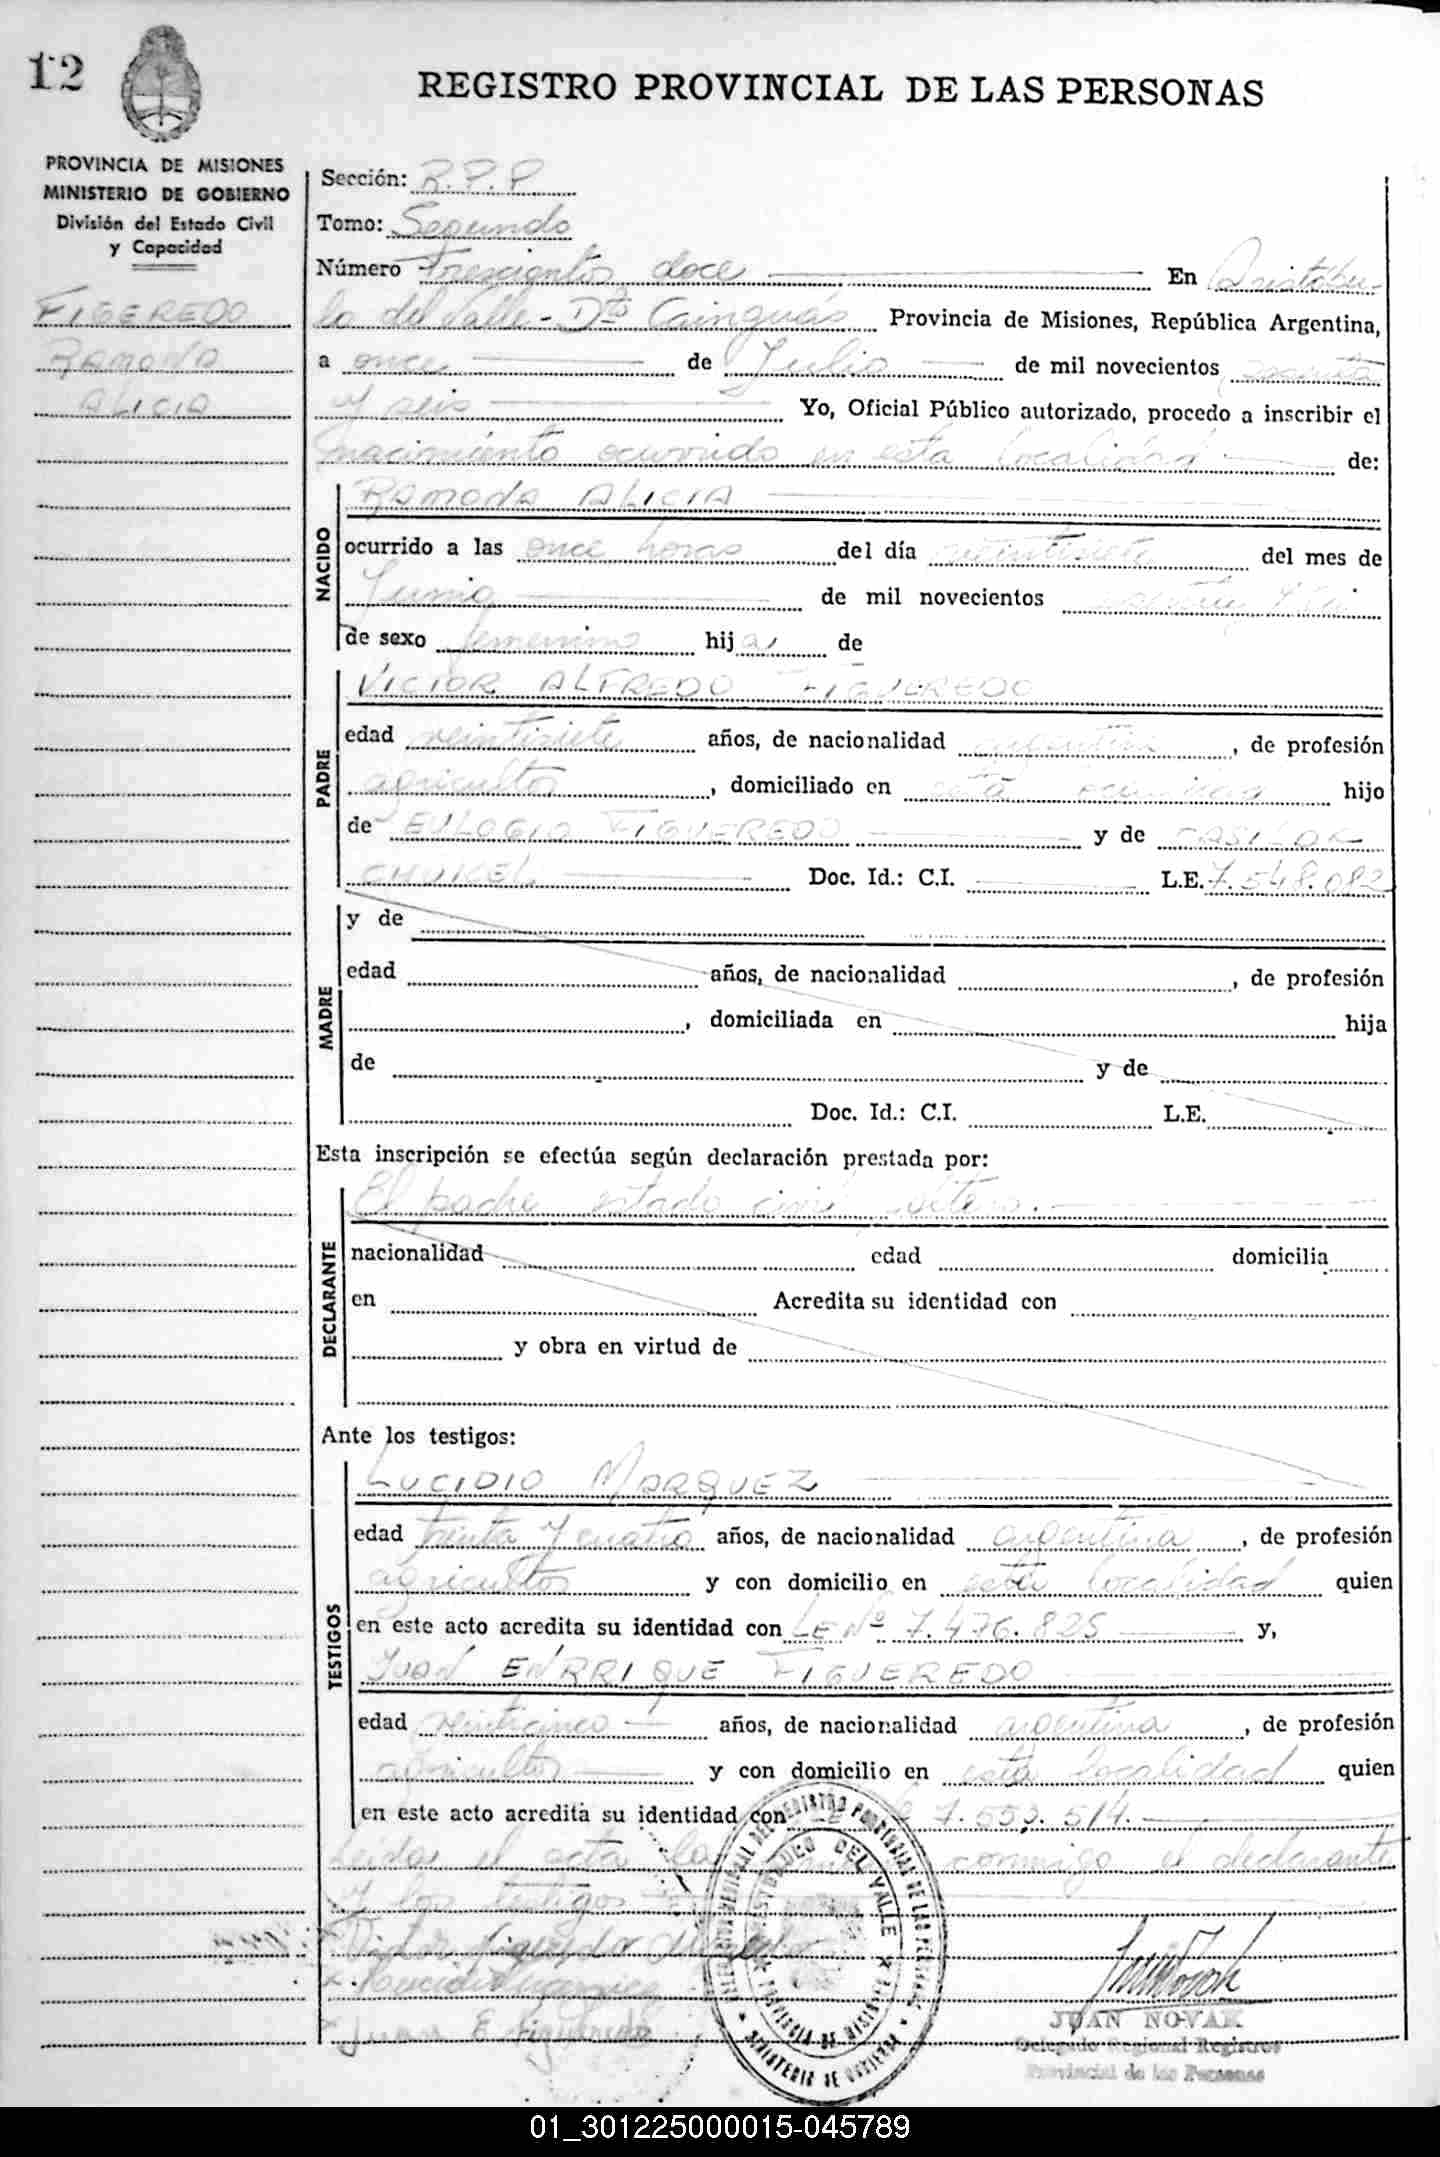 12
REGISTRO PROVINCIAL DE LAS PERSONAS
PROVINCIA DE MISIONES
MINISTERIO DE GOBIERNO
División del Estado Civil
y Capacidad
FIGEREDO
RAMONA
ALICIA
Sección: R.P.P
Tomo: Segundo
Número Trescientos doce En Aristóbu-
lo del Valle - Dto Cainguás Provincia de Misiones, República Argentina,
a once de Julio de mil novecientos sesenta
y seis Yo, Oficial Público autorizado, procedo a inscribir el
nacimiento ocurrido en esta localidad de:
NACIDO
RAMONA ALICIA
ocurrido a las once horas del día veintisiete del mes de
Junio de mil novecientos
de sexo femenino hija de
PADRE
VICTOR ALFREDO FIGUEREDO
edad veintisiete años, de nacionalidad argentina, de profesión
agricultor, domiciliado en esta hijo
de EULOGIO FIGUEREDO y de
Doc. Id.: C.I. L.E. 7.548.082
MADRE
y de
edad años, de nacionalidad , de profesión
, domiciliada en hija
de y de
Doc. Id.: C.I. L.E.
Esta inscripción se efectúa según declaración prestada por:
DECLARANTE
El padre estado civil soltero.
nacionalidad edad domicilia
en Acredita su identidad con
y obra en virtud de
Ante los testigos:
TESTIGOS
LUCIDIO MARQUEZ
edad treinta y cuatro años, de nacionalidad argentina, de profesión
agricultor y con domicilio en esta localidad quien
en este acto acredita su identidad con LE Nº 7.476.825 y,
JUAN ENRRIQUE FIGUEREDO
edad veinticinco años, de nacionalidad argentina, de profesión
agricultor y con domicilio en esta localidad quien
en este acto acredita su identidad con 7.553.514.
Leida el acta la conmigo el declarante
y los testigos
Juan E Figueredo
JUAN NOVAK
Delegado Regional Registros
Provincial de las Personas
MINISTERIO DE GOBIERNO
01_301225000015-045789